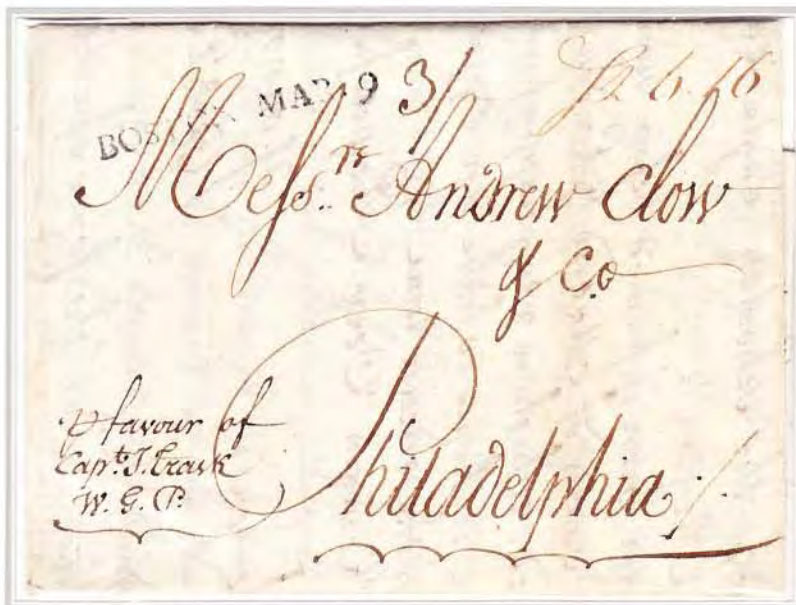 BOSTON MAR 9 3/ 6.16
Messrs. Andrew Clow
& Co
Philadelphia
favour of
Capt. J.
W. G. P.